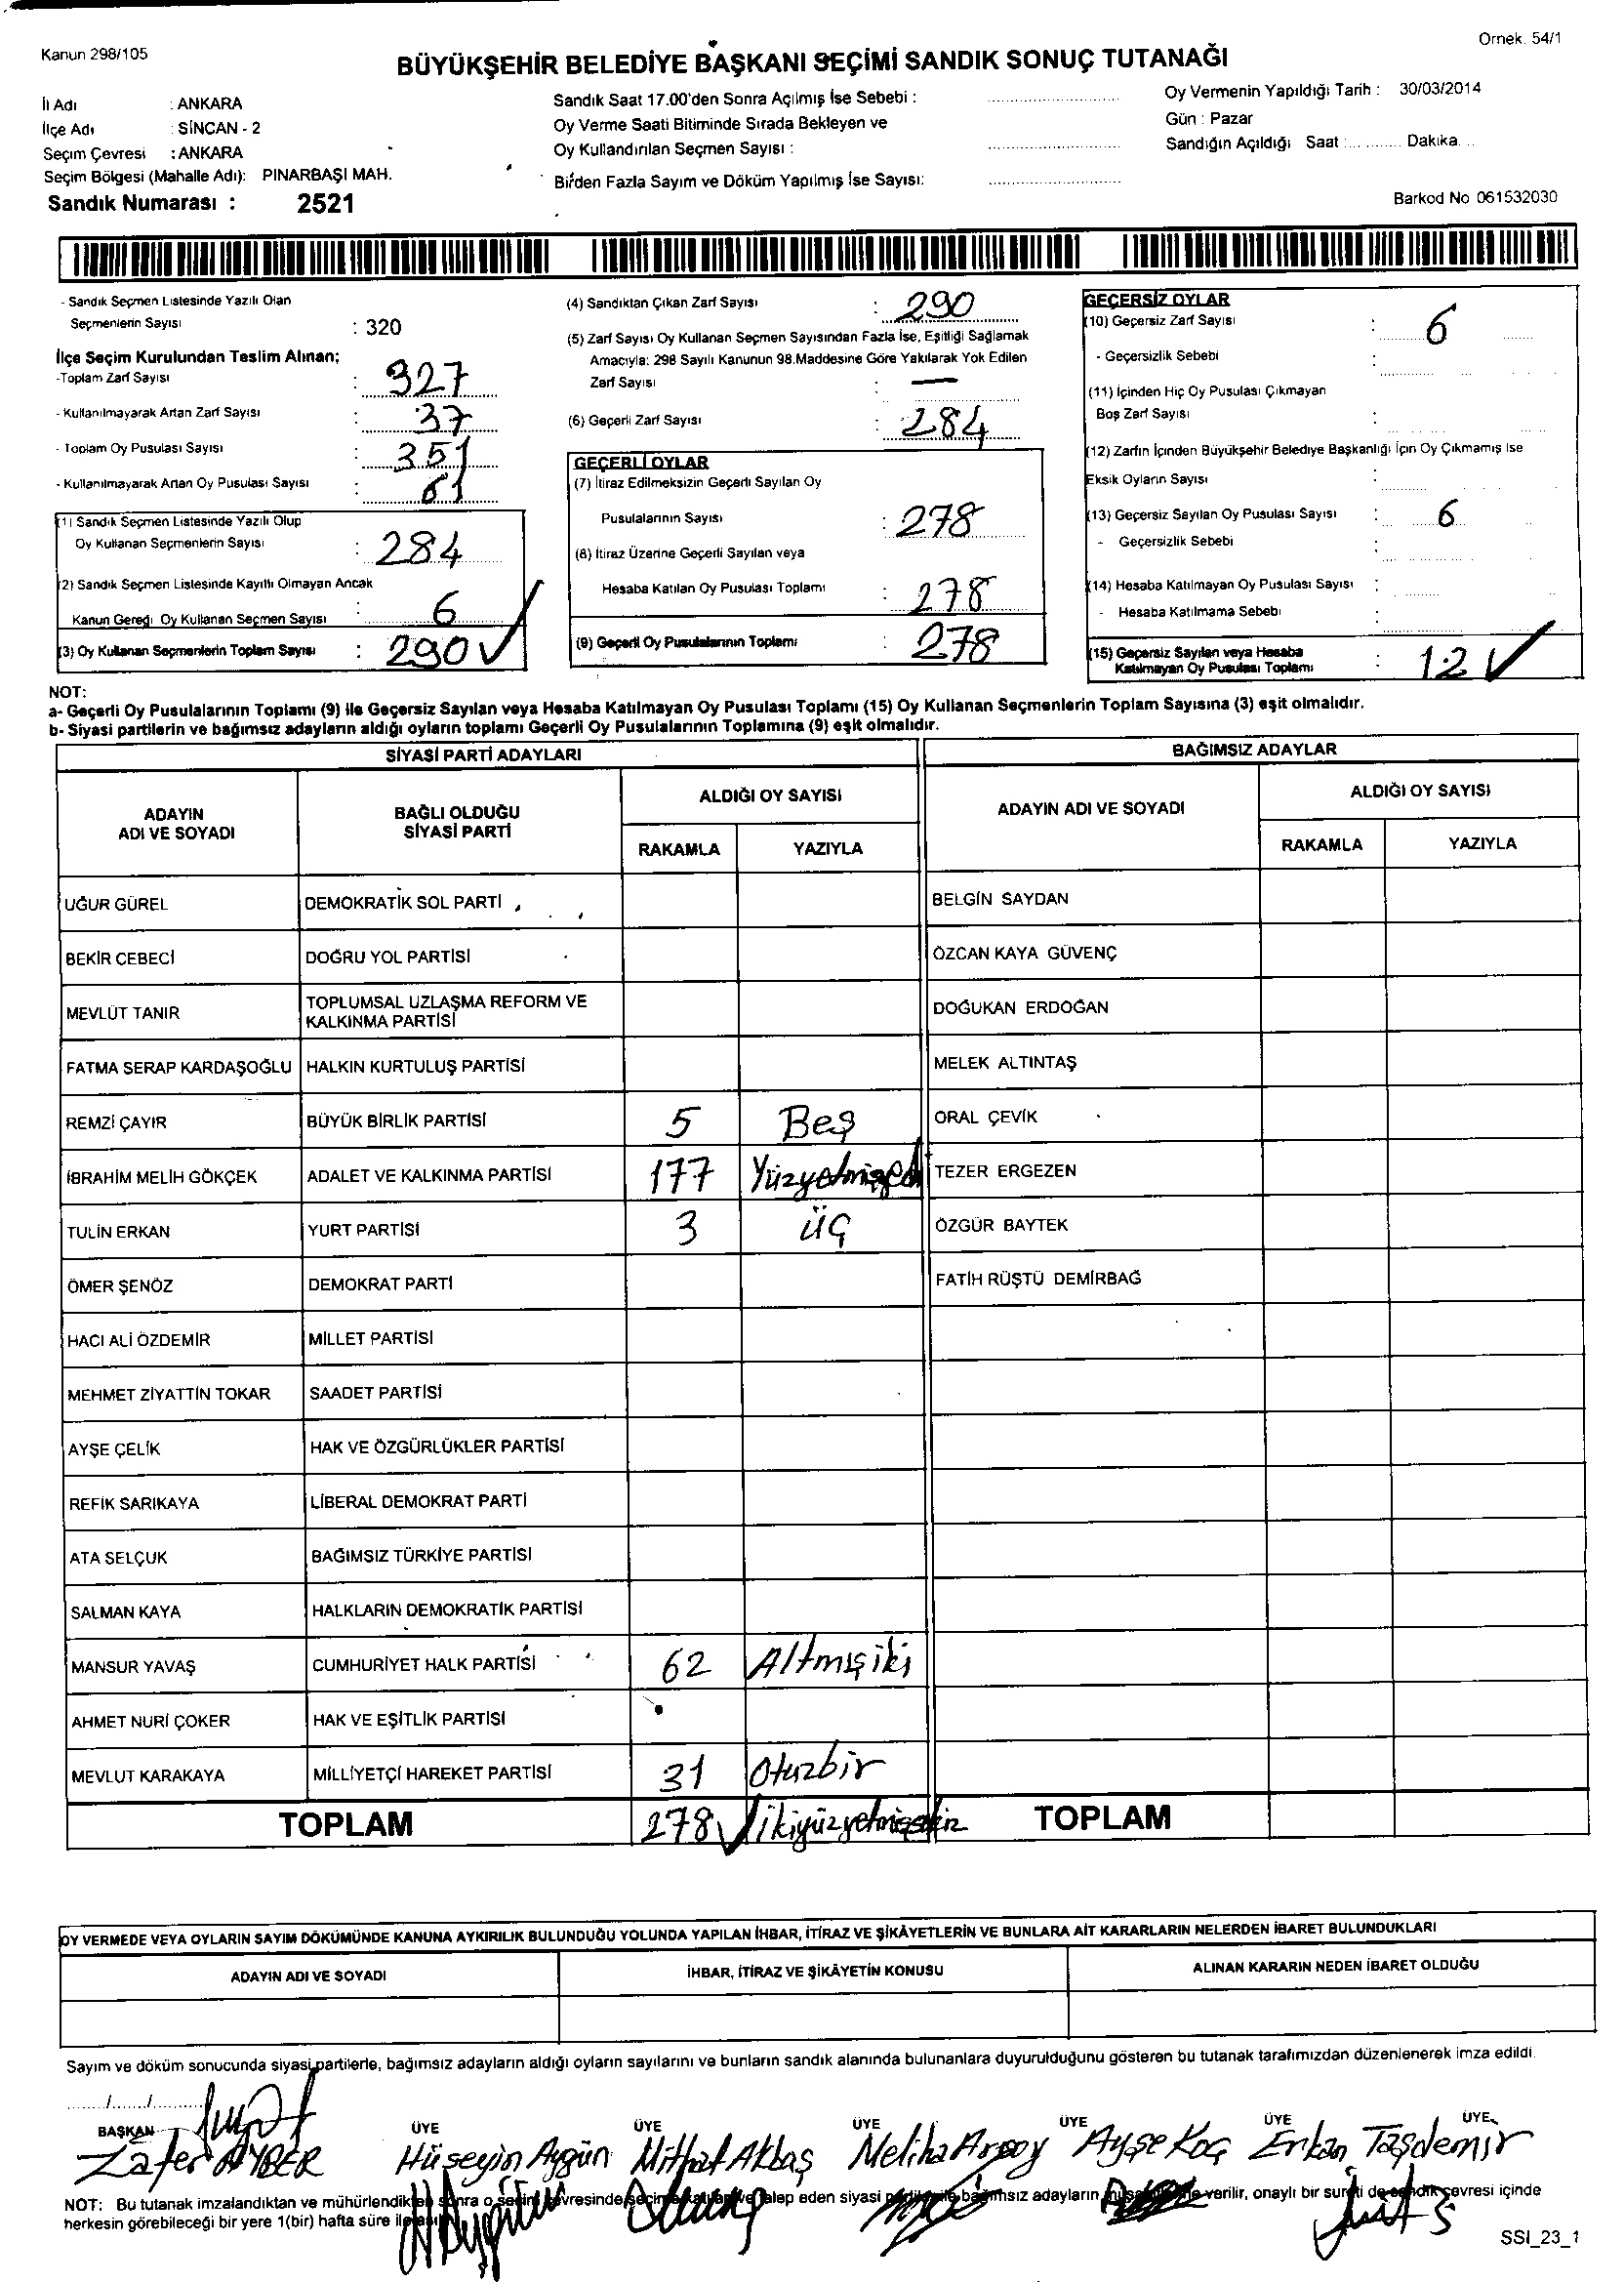 Kanun 298/105
Örnek. 54/1
BÜYÜKŞEHİR BELEDİYE BAŞKANI SEÇİMİ SANDIK SONUÇ TUTANAĞI
İl Adı : ANKARA
İlçe Adı : SİNCAN - 2
Seçim Çevresi : ANKARA
Seçim Bölgesi (Mahalle Adı): PINARBAŞI MAH.
Sandık Numarası : 2521
Sandık Saat 17.00'den Sonra Açılmış İse Sebebi :
Oy Verme Saati Bitiminde Sırada Bekleyen ve
Oy Kullandırılan Seçmen Sayısı :
Birden Fazla Sayım ve Döküm Yapılmış İse Sayısı:
Oy Vermenin Yapıldığı Tarih : 30/03/2014
Gün : Pazar
Sandığın Açıldığı Saat :............ Dakika...
Barkod No 061532030
- Sandık Seçmen Listesinde Yazılı Olan
Seçmenlerin Sayısı : 320
İlçe Seçim Kurulundan Teslim Alınan;
-Toplam Zarf Sayısı : 327
- Kullanılmayarak Artan Zarf Sayısı : 37
- Toplam Oy Pusulası Sayısı : 351
- Kullanılmayarak Artan Oy Pusulası Sayısı : 61
(1) Sandık Seçmen Listesinde Yazılı Olup
Oy Kullanan Seçmenlerin Sayısı : 284
(2) Sandık Seçmen Listesinde Kayıtlı Olmayan Ancak
Kanun Gereği Oy Kullanan Seçmen Sayısı : 6
(3) Oy Kullanan Seçmenlerin Toplam Sayısı : 290
(4) Sandıktan Çıkan Zarf Sayısı : 290
(5) Zarf Sayısı Oy Kullanan Seçmen Sayısından Fazla İse, Eşitliği Sağlamak
Amacıyla: 298 Sayılı Kanunun 98.Maddesine Göre Yakılarak Yok Edilen
Zarf Sayısı : —
(6) Geçerli Zarf Sayısı : 284
GEÇERLİ OYLAR
(7) İtiraz Edilmeksizin Geçerli Sayılan Oy
Pusulalarının Sayısı : 278
(8) İtiraz Üzerine Geçerli Sayılan veya
Hesaba Katılan Oy Pusulası Toplamı : 278
(9) Geçerli Oy Pusulalarının Toplamı : 278
GEÇERSİZ OYLAR
(10) Geçersiz Zarf Sayısı : 6
- Geçersizlik Sebebi :
(11) İçinden Hiç Oy Pusulası Çıkmayan
Boş Zarf Sayısı :
(12) Zarfın İçinden Büyükşehir Belediye Başkanlığı İçin Oy Çıkmamış İse
Eksik Oyların Sayısı :
(13) Geçersiz Sayılan Oy Pusulası Sayısı : 6
- Geçersizlik Sebebi :
(14) Hesaba Katılmayan Oy Pusulası Sayısı :
- Hesaba Katılmama Sebebi :
(15) Geçersiz Sayılan veya Hesaba
Katılmayan Oy Pusulası Toplamı : 12
NOT:
a- Geçerli Oy Pusulalarının Toplamı (9) ile Geçersiz Sayılan veya Hesaba Katılmayan Oy Pusulası Toplamı (15) Oy Kullanan Seçmenlerin Toplam Sayısına (3) eşit olmalıdır.
b- Siyasi partilerin ve bağımsız adayların aldığı oyların toplamı Geçerli Oy Pusulalarının Toplamına (9) eşit olmalıdır.
SİYASİ PARTİ ADAYLARI
ADAYIN ADI VE SOYADI
BAĞLI OLDUĞU SİYASİ PARTİ
ALDIĞI OY SAYISI
RAKAMLA YAZIYLA
UĞUR GÜREL DEMOKRATİK SOL PARTİ
BEKİR CEBECİ DOĞRU YOL PARTİSİ
MEVLÜT TANIR TOPLUMSAL UZLAŞMA REFORM VE KALKINMA PARTİSİ
FATMA SERAP KARDAŞOĞLU HALKIN KURTULUŞ PARTİSİ
REMZİ ÇAYIR BÜYÜK BİRLİK PARTİSİ 5 Beş
İBRAHİM MELİH GÖKÇEK ADALET VE KALKINMA PARTİSİ 177
TULİN ERKAN YURT PARTİSİ 3 üç
ÖMER ŞENÖZ DEMOKRAT PARTİ
HACI ALİ ÖZDEMİR MİLLET PARTİSİ
MEHMET ZİYATTİN TOKAR SAADET PARTİSİ
AYŞE ÇELİK HAK VE ÖZGÜRLÜKLER PARTİSİ
REFİK SARIKAYA LİBERAL DEMOKRAT PARTİ
ATA SELÇUK BAĞIMSIZ TÜRKİYE PARTİSİ
SALMAN KAYA HALKLARIN DEMOKRATİK PARTİSİ
MANSUR YAVAŞ CUMHURİYET HALK PARTİSİ 62 Altmışiki
AHMET NURİ ÇOKER HAK VE EŞİTLİK PARTİSİ
MEVLUT KARAKAYA MİLLİYETÇİ HAREKET PARTİSİ 31 Otuzbir
TOPLAM 278
BAĞIMSIZ ADAYLAR
ADAYIN ADI VE SOYADI
ALDIĞI OY SAYISI
RAKAMLA YAZIYLA
BELGİN SAYDAN
ÖZCAN KAYA GÜVENÇ
DOĞUKAN ERDOĞAN
MELEK ALTINTAŞ
ORAL ÇEVİK
TEZER ERGEZEN
ÖZGÜR BAYTEK
FATİH RÜŞTÜ DEMİRBAĞ
TOPLAM
OY VERMEDE VEYA OYLARIN SAYIM DÖKÜMÜNDE KANUNA AYKIRILIK BULUNDUĞU YOLUNDA YAPILAN İHBAR, İTİRAZ VE ŞİKÂYETLERİN VE BUNLARA AİT KARARLARIN NELERDEN İBARET BULUNDUKLARI
ADAYIN ADI VE SOYADI İHBAR, İTİRAZ VE ŞİKÂYETİN KONUSU ALINAN KARARIN NEDEN İBARET OLDUĞU
Sayım ve döküm sonucunda siyasi partilerle, bağımsız adayların aldığı oyların sayılarını ve bunların sandık alanında bulunanlara duyurulduğunu gösteren bu tutanak tarafımızdan düzenlenerek imza edildi.
....../....../............
BAŞKAN ÜYE ÜYE ÜYE ÜYE ÜYE ÜYE
Zafer Hüseyin Aygün Mithat Akbaş Meliha Arsoy Ayşe Koç Erkan Taşdemir
NOT: Bu tutanak imzalandıktan ve mühürlendikten sonra o seçim çevresinde seçime katılan ve talep eden siyasi bağımsız adayların verilir, onaylı bir sureti de sandık çevresi içinde
herkesin görebileceği bir yere 1(bir) hafta süre ile
SSI_23_1